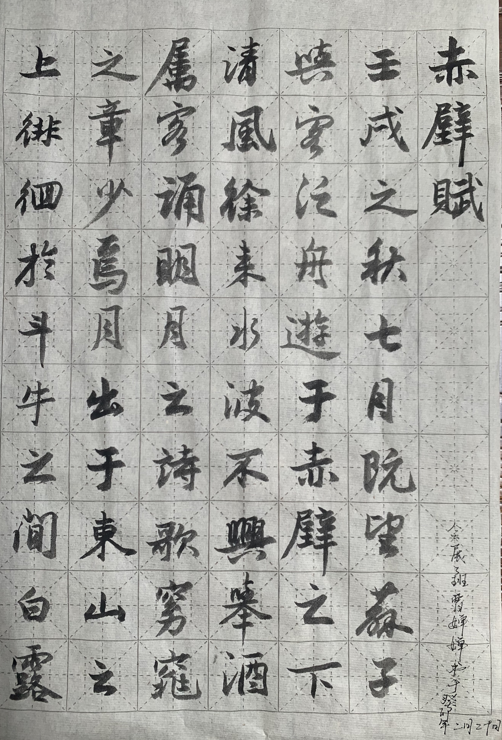 赤壁賦
壬戌之秋七月既望蘇子
與客泛舟遊于赤壁之下
清風徐来水波不興舉酒
属客誦明月之詩歌窈窕
之章少焉月出于東山之
上徘徊於斗牛之間白露
晨班曹婵婵书于癸卯年